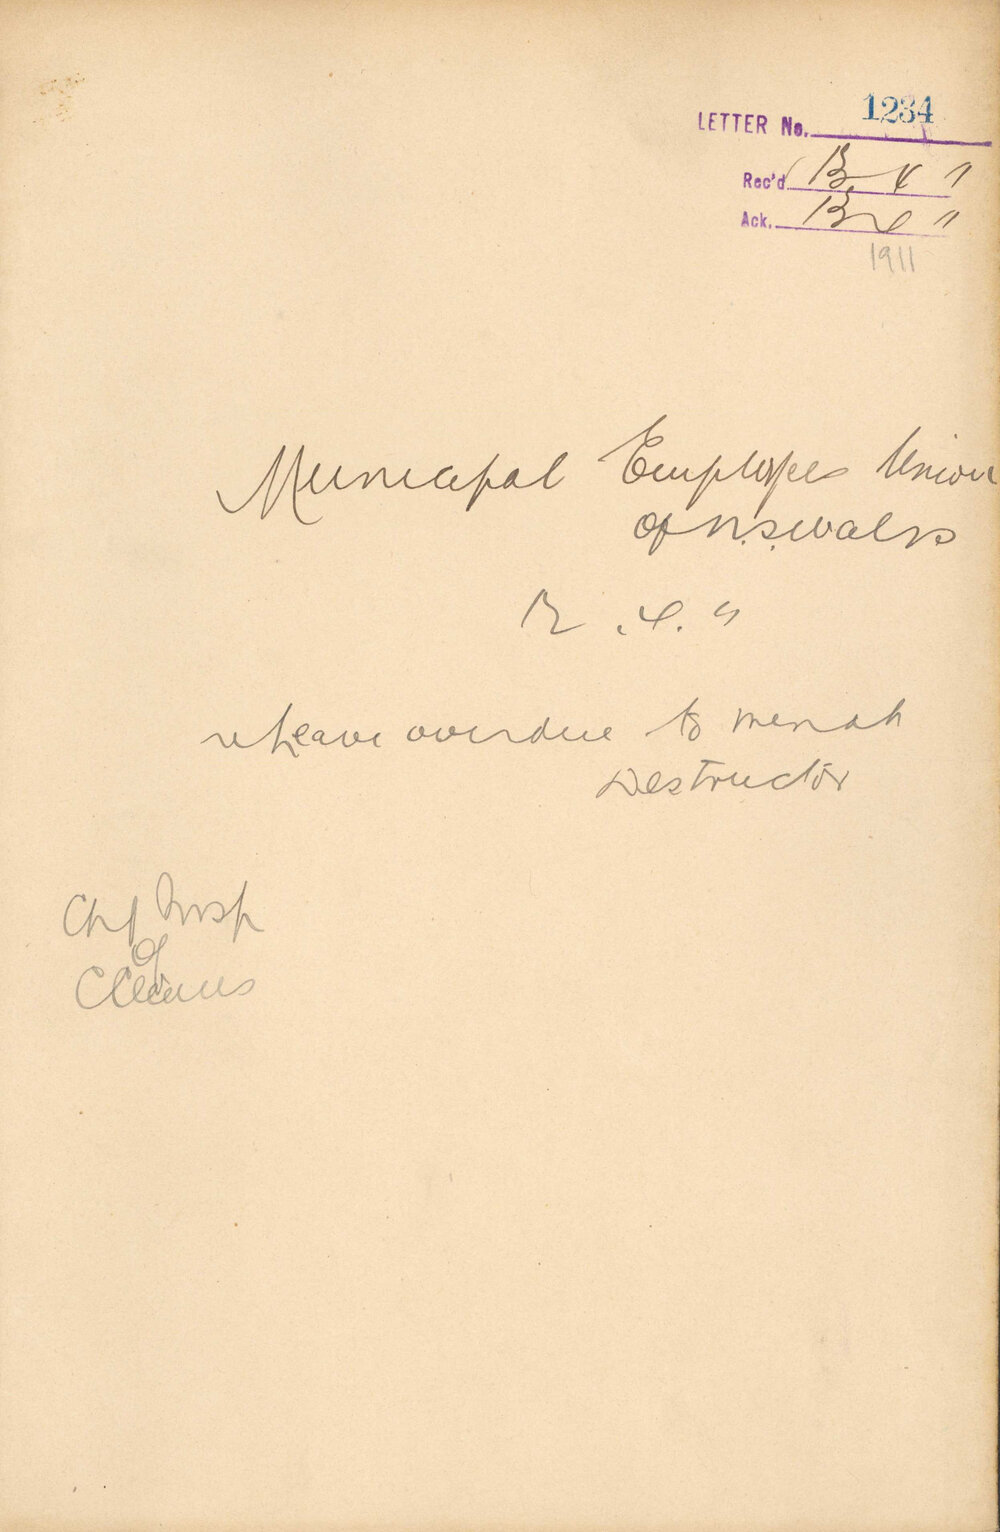 LETTER No. 1234
Rec'd 13 4 11
Ack. 13 4 11
1911
Municipal Employees Union
of N.S. Wales
12 . 4 . 11
re Leave overdue to men at
Destructor
Chf Insp
of